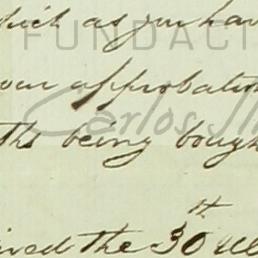 which as you have
FUNDACI
your approbation
Carlos
ths being bough
ived the 30th